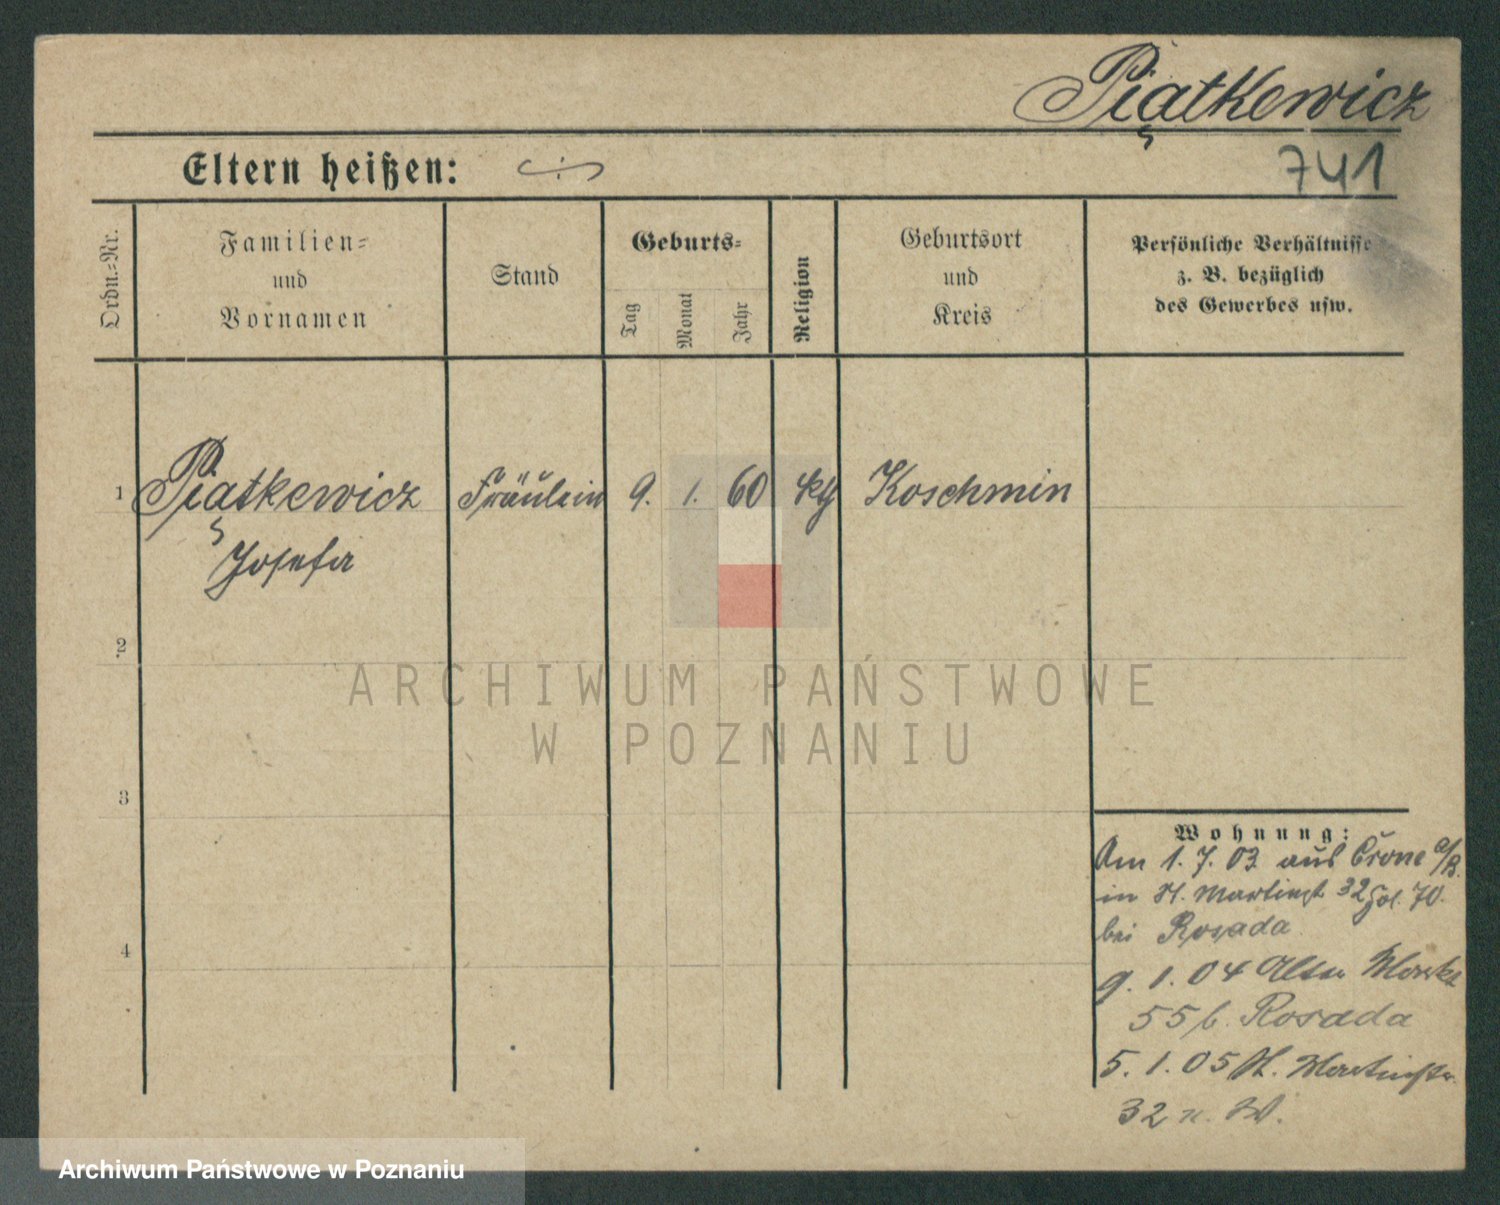 Piątkewicz
741
Eltern heißen:
Ordn.-Nr.
Familien-
und
Vornamen
Stand
Geburts-
Tag
Monat
Jahr
Religion
Geburtsort
und
Kreis
Persönliche Verhältnisse
z. B. bezüglich
des Gewerbes usw.
1 Piątkewicz Fräulein 9. 1. 60 kth Koschmin
Josefa
2
3
4
ARCHIWUM PAŃSTWOWE
W POZNANIU
Wohnung:
Am 1. 7. 03 aus Crone a/B.
in St. Martinst. 32 Hol. 70.
bei Rosada
9. 1. 04 Alter Markt
55 b. Rosada
5. 1. 05 St. Martinstr.
32 n. W.
Archiwum Państwowe w Poznaniu